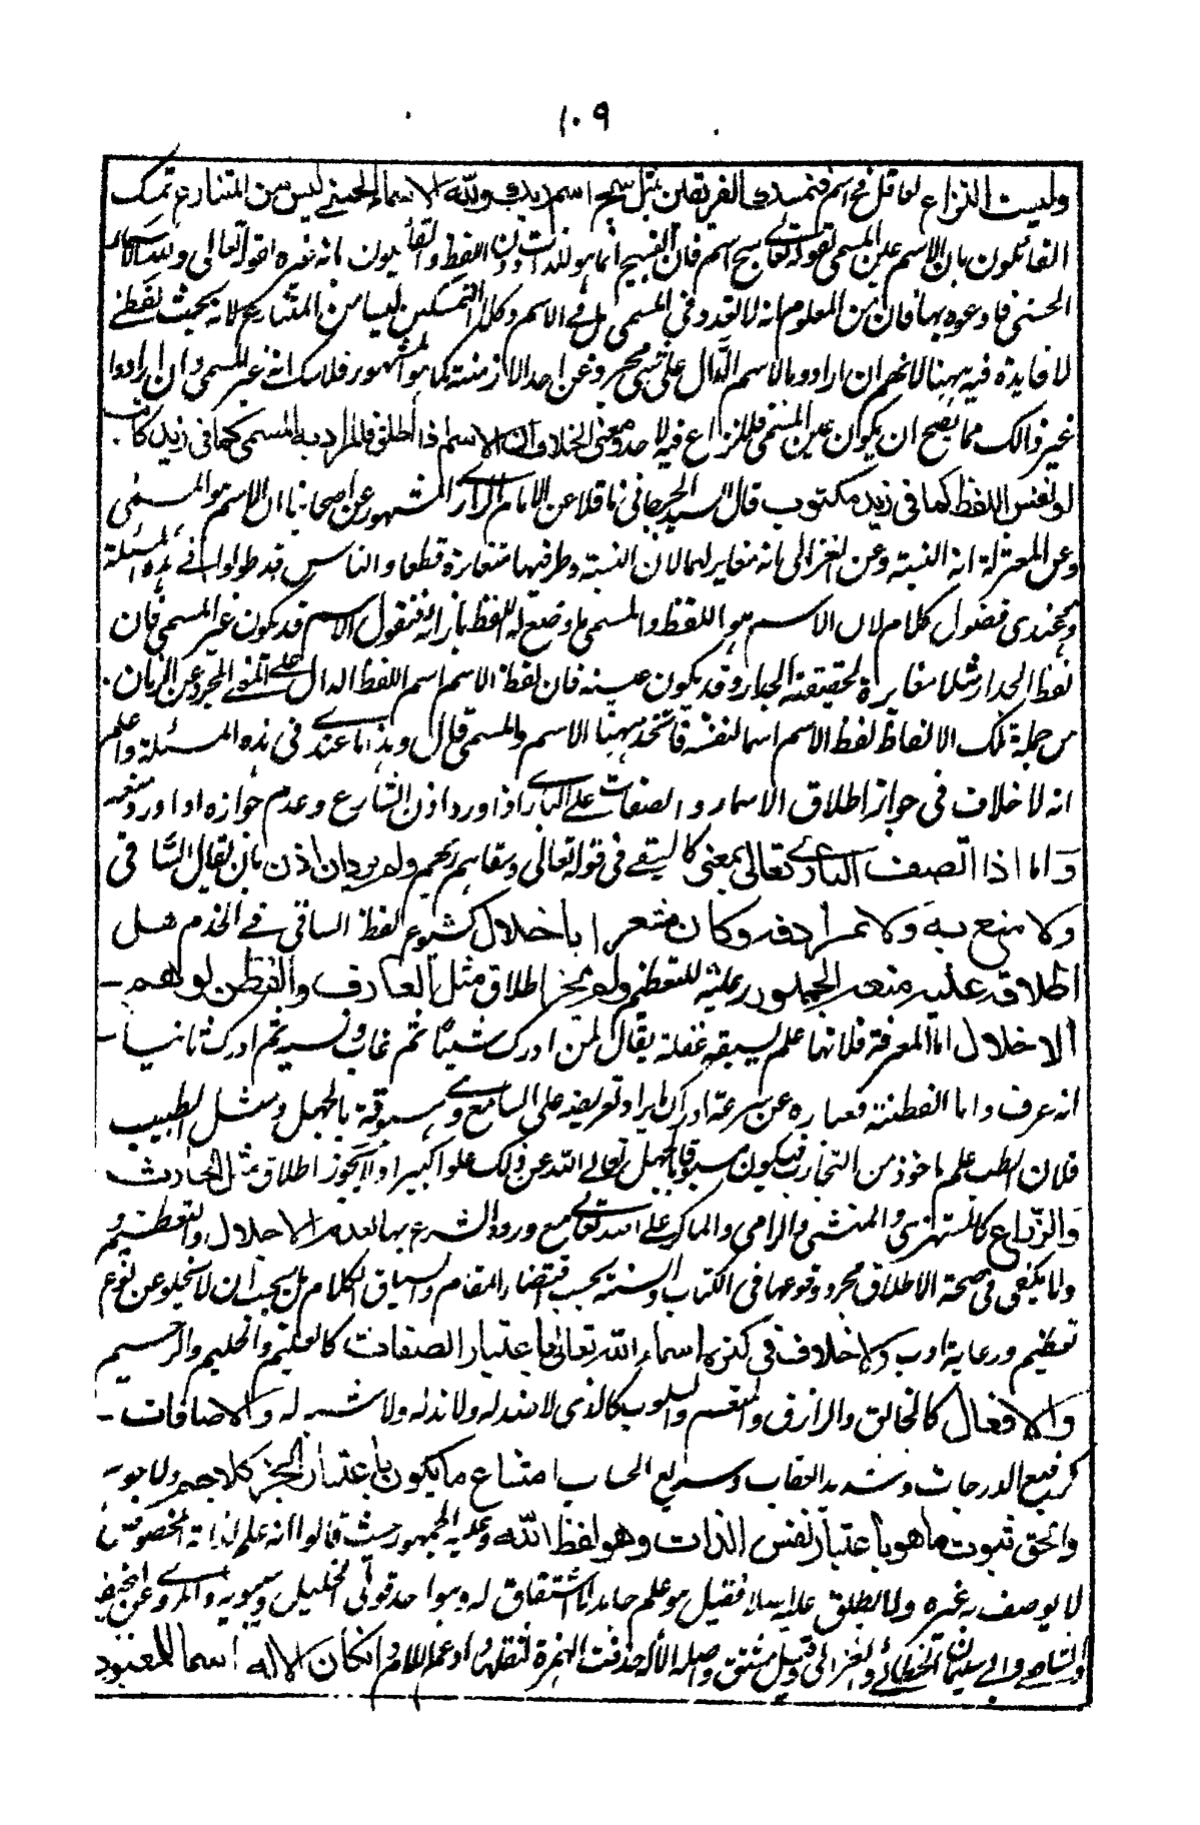 ١٠٩
وليست النزاع لعاقل في اسم فتمسك الفريقين بمثل سبح اسم ربك ولله الاسماء الحسنى ليس من المتنازع تمسك
القائلون بان الاسم عين المسمى لقوله تعالى سبح اسم فان التسبيح انما هو للذات دون اللفظ والقائلون بانه غيره لقوله تعالى ولله الاسماء
الحسنى فادعوه بها فان من المعلوم انه لا تعدد في المسمى بل في الاسم وكلا التمسكين ليسا من المتنازع لانه بحث لفظي
لا فايدة فيه ههنا لانهم ان ارادوا بالاسم الدال على شيء مجرد عن احد الازمنة كما هو المشهور فلا شك انه غير المسمى وان ارادوا
غير ذالك مما يصح ان يكون عين المسمى فلا نزاع فيه لاحد ومعنى الخلاف ان الاسم اذا اطلق فالمراد به المسمى كما في زيد كاتب
او نفس اللفظ كما في زيد مكتوب قال السيد الجرجاني ناقلا عن الامام الرازي المشهور عن اصحابنا ان الاسم هو المسمى
وعن المعتزلة انه التسمية وعن الغزالي انه مغاير لهما لان النسبة وطرفيها متغايرة قطعا والناس قد طولوا في هذه المسئلة
وهو عندي فضول كلام لان الاسم هو اللفظ والمسمى ما وضع له اللفظ بازائه فنقول الاسم قد يكون غير المسمى فان
لفظ الجدار مثلا مغايرة لحقيقة الجدار وقد يكون عينه فان لفظ الاسم اسم اللفظ الدال على المعنى المجرد عن الزمان
من جملة تلك الالفاظ لفظ الاسم اسما لنفسه فاتحد ههنا الاسم والمسمى قال وهذا ما عندي في هذه المسئلة واعلم
انه لا خلاف في جواز اطلاق الاسماء والصفات على الباري اذا ورد اذن الشارع وعدم جوازه اذا ورد منعه
واما اذا اتصف الباري تعالى بمعنى كالسقي في قوله تعالى وسقاهم ربهم ولم يرد اذن بان يقال الساقي
ولا منع به ولا بمرادفه وكان مشعرا باخلال كشيوع لفظ الساقي في الخدم هل
اطلاقه عليه منعه الجمهور رعاية للتعظيم ولم يجز اطلاق مثل العارف والفطن لوهم
الاخلال اما المعرفة فلانها علم يسبقه غفلة يقال لمن ادرك شيئا ثم غاب ونسيه ثم ادرك ثانيا
انه عرف واما الفطنة فعباره عن سرعة ادراك ما يراد تعريضه على السامع وهي مسبوقة بالجهل ومثل الطبيب
فلان الطب علم ماخوذ من التجارب فيكون مسبوقا بالجهل تعالى الله عن ذلك علوا كبيرا ولا يجوز اطلاق مثل الحادث
والزراع كالمستهزئ والمنشئ والرامي والماكر على الله تعالى مع ورود الشرع بها لعدم الاجلال والتعظيم
ولا يكفي في صحة الاطلاق مجرد وقوعها في الكتاب والسنة بحسب اقتضاء المقام وسياق الكلام بل يجب ان لا يخلو عن نوع
تعظيم ورعاية ادب ولا خلاف في كثرة اسماء الله تعالى باعتبار الصفات كالعليم والحليم والرحيم
والافعال كالخالق والرازق والمنعم والسلوب كالذي لا ضد له ولا ند له ولا شبه له والاضافات
كرفيع الدرجات وشديد العقاب وسريع الحساب امتناع ما يكون باعتبار الجزء كلا جسم ولا جوهر
والحق ثبوت ما هو باعتبار نفس الذات وهو لفظ الله وعليه الجمهور حيث قالوا انه علم لذاته المخصوص
لا يوصف به غيره ولا يطلق على سواه فقيل هو علم جامد لا اشتقاق له وهو احد قولي الخليل وسيبويه والمروي عن ابي حنيفة
والشافعي وابي سليمان الخطابي والغزالي وقيل مشتق واصله الاله حذفت الهمزة لثقلها وادغم اللام فكان الاله اسما للمعبود